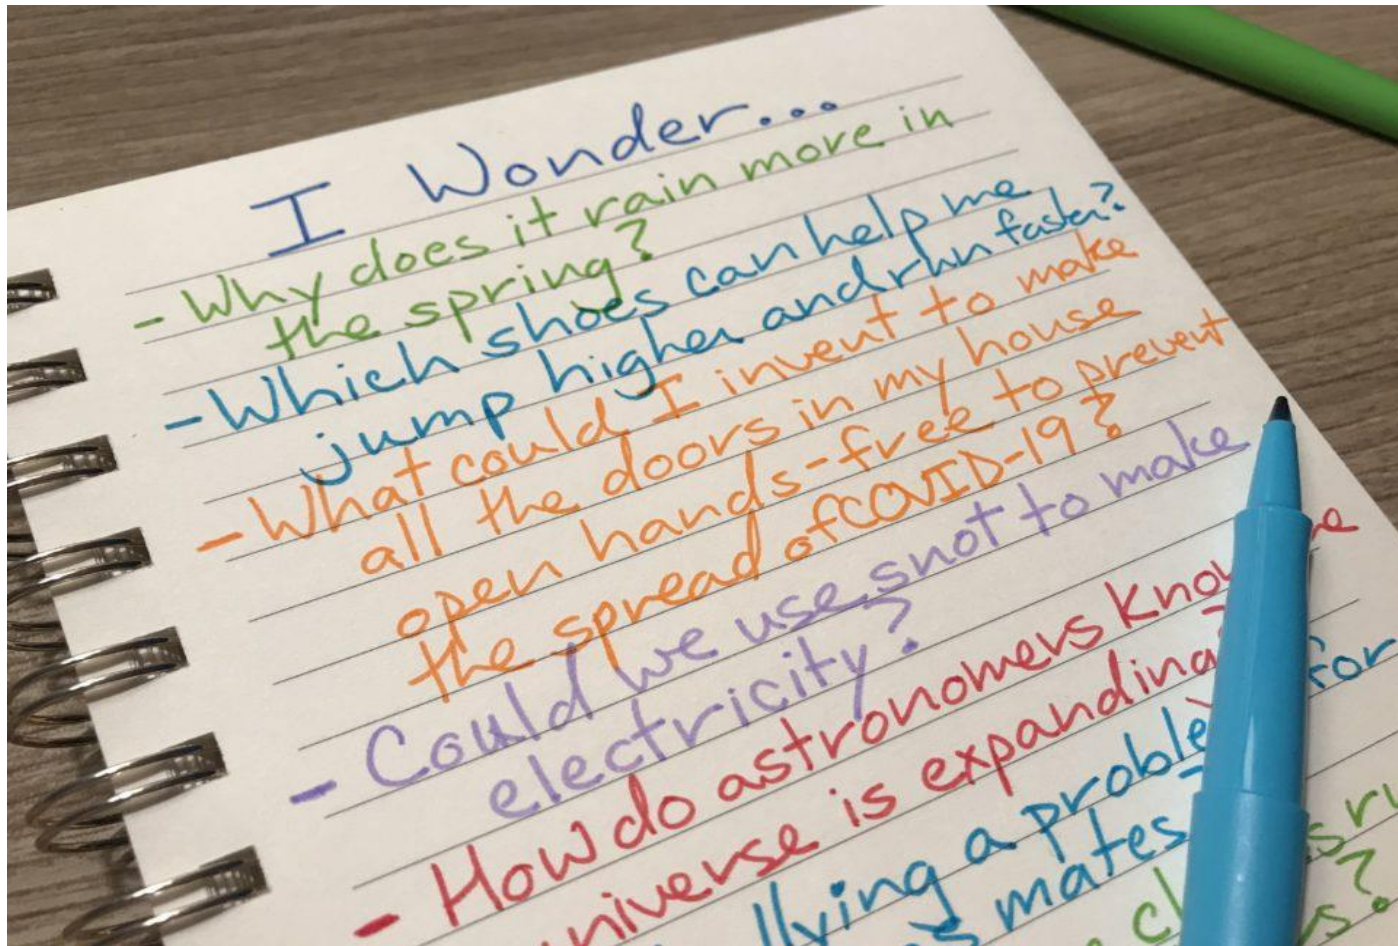 I Wonder...
- Why does it rain more in
the spring?
- Which shoes can help me
jump higher and run faster?
- What could I invent to make
all the doors in my house
open hands-free to prevent
the spread of COVID-19?
- Could we use snot to make
electricity?
- How do astronomers know
universe is expanding?
a for
mates